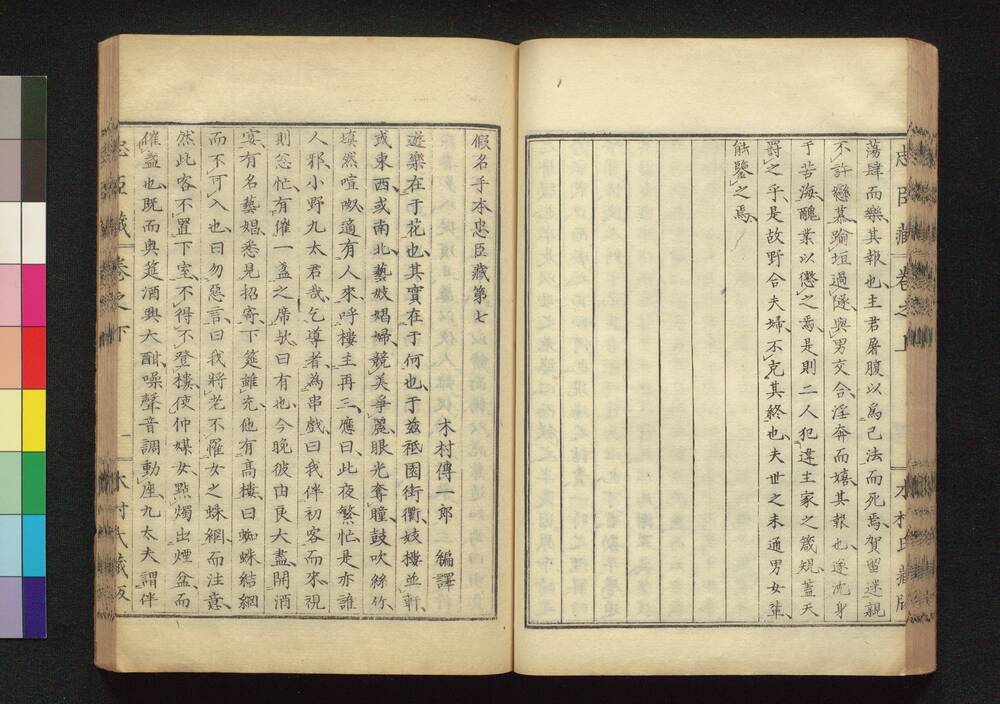 忠臣藏 卷之上 木村氏藏版
蕩肆而樂其報也主君屠腹以為己法而死焉賀留迷親
不許戀慕踰垣過隧與男交合淫奔而嬉其報也遂沈身
于苦海醜業以懲之焉是則二人犯違主家之箴規蓋天
罸之乎是故野合夫婦不克其終也夫世之未通男女輩
能鑒之焉
假名手本忠臣藏第七
木村傳一郎 編譯
遊樂在于花也其實在于何也于茲祗園街衢妓樓並軒
或東西或南北藝妓娼婦競美爭麗眼光奪瞳鼓吹絲竹
填然喧呶適有人來呼樓主再三應曰此夜繁忙是亦誰
人邪小野九太君哉乞導者為串戲曰我伴初客而來視
則怱忙有催一盞之席歟曰有也今晚彼由良大盡開酒
宴有名藝娼悉見招寄下筵雖充他有高樓曰蜘蛛結網
而不可入也曰勿惡言曰我將老不罹女之蛛網而注意
然此客不置下室不得不登樓使仲媒女點燭出煙盆而
催盞也既而奥筵酒興大酣噪聲音調動座九太夫謂伴
忠臣藏 卷之下 一 木村氏藏版